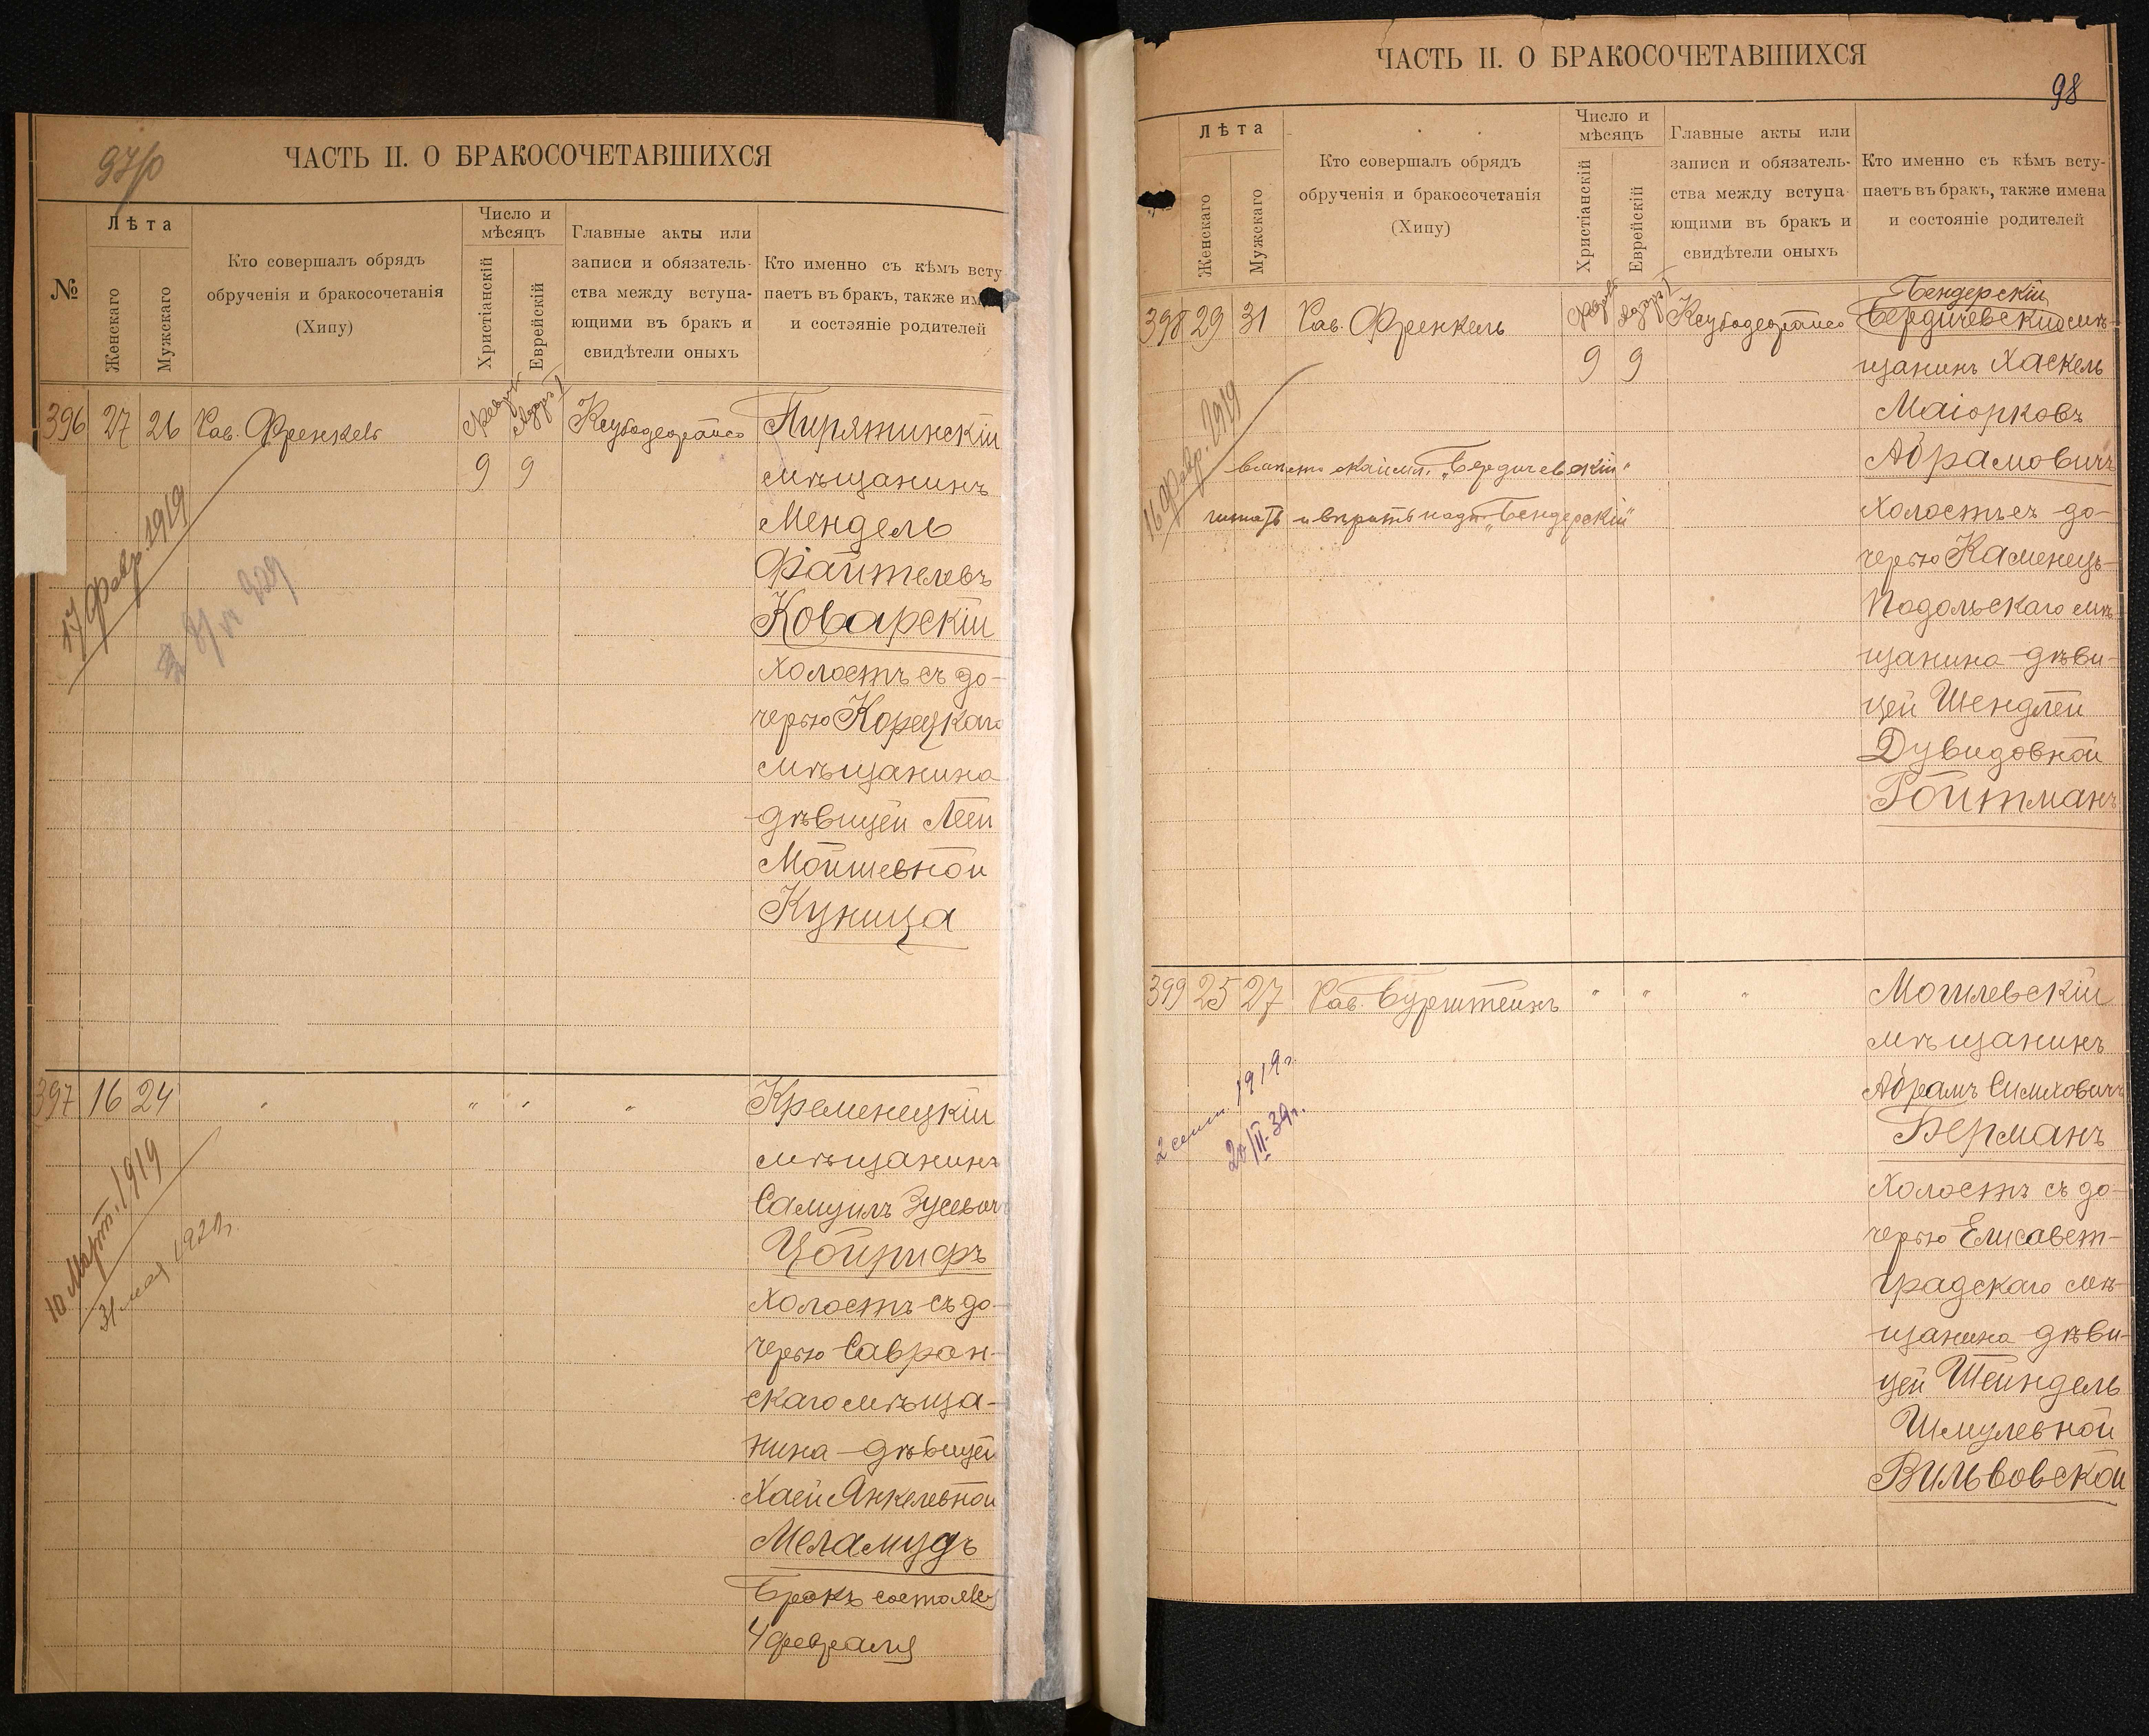 97/о
ЧАСТЬ II. О БРАКОСОЧЕТАВШИХСЯ
№
Лѣта
Женскаго
Мужскаго
Кто совершалъ обрядъ
обрученія и бракосочетанія
(Хипу)
Число и
мѣсяцъ
Христіанскій
Еврейскій
Главные акты или
записи и обязатель-
ства между вступа-
ющими въ бракъ и
свидѣтели оныхъ
Кто именно съ кѣмъ всту
паетъ въ бракъ, также им
и состояніе родителей
396 27 26 Рав. Френкель
Февраль Адаръ I
9 9
17 Февр. 1919
Пирятинскій
мѣщанинъ
Мендель
Файтелевъ
Коварскій
холостъ съ до-
черью Корецкаго
мѣщанина
дѣвицей Леей
Мойшевной
Куница
397 16 24 " " " "
10 Март. 1919
Кременецкій
мѣщанинъ
Самуилъ Зусевич
Цойрифъ
холостъ съ до-
черью Савран-
скаго мѣща-
нина дѣвицей
Хаей Янкелевной
Меламудъ
Бракъ состоялся
4 февраля
ЧАСТЬ II. О БРАКОСОЧЕТАВШИХСЯ
98
Лѣта
Женскаго
Мужскаго
Кто совершалъ обрядъ
обрученія и бракосочетанія
(Хипу)
Число и
мѣсяцъ
Христіанскій
Еврейскій
Главные акты или
записи и обязатель-
ства между вступа-
ющими въ бракъ и
свидѣтели оныхъ
Кто именно съ кѣмъ всту-
паетъ въ бракъ, также имена
и состояніе родителей
398 29 31 Рав. Френкель
Февраль Адаръ I
9 9
16 Февр. 1919
"Бердичевскій"
читать и вѣрить надп. "Бендерскій"
Бендерскій
Бердичевскій мѣ-
щанинъ Хаскель
Маіорковъ
Абрамовичъ
холостъ съ до-
черью Каменецъ-
Подольскаго мѣ-
щанина дѣви-
цей Шендлей
Дувидовной
Ройтманъ
399 25 27 Рав. Бурштейнъ " " "
1919 г.
20/II-39 г.
Могилевскій
мѣщанинъ
Абрамъ Симховичъ
Берманъ
холостъ съ до-
черью Елисавет-
градскаго мѣ-
щанина дѣви-
цей Шейндель
Шмулевной
Вильвовской